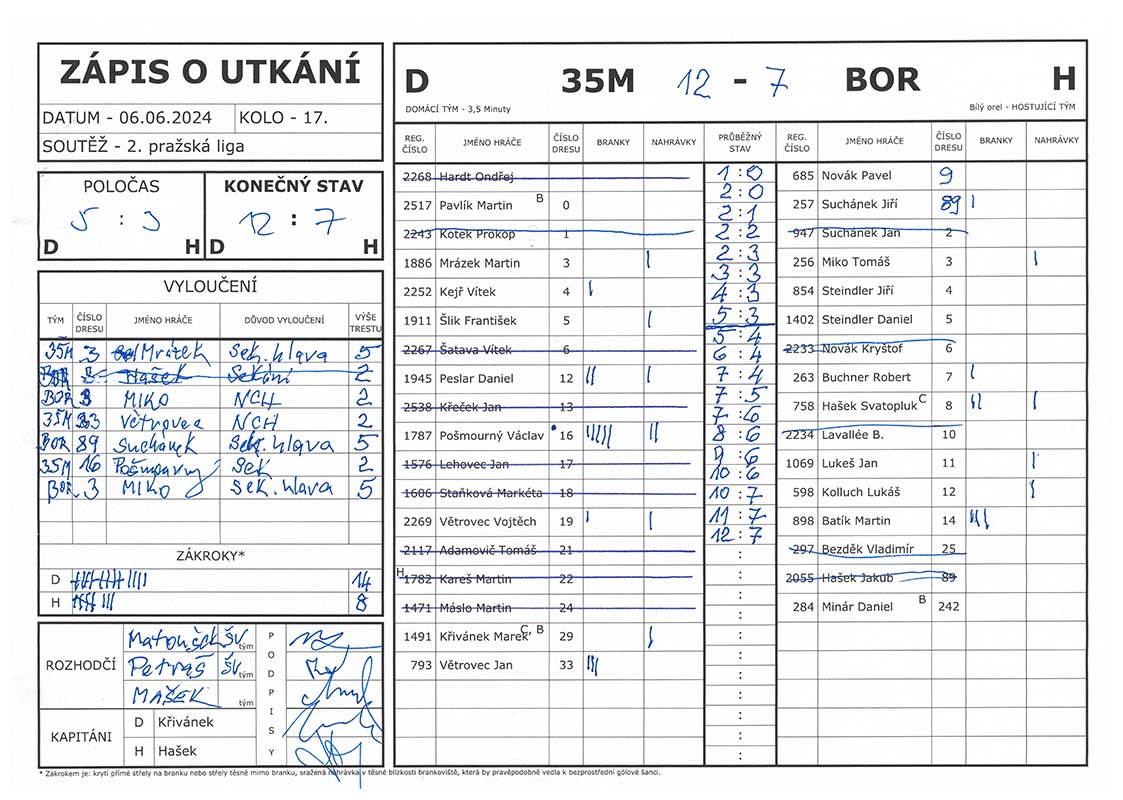 ZÁPIS O UTKÁNÍ
DATUM - 06.06.2024 KOLO - 17.
SOUTĚŽ - 2. pražská liga
POLOČAS KONEČNÝ STAV
5 : 3 12 : 7
D H D H
VYLOUČENÍ
TÝM ČÍSLO DRESU JMÉNO HRÁČE DŮVOD VYLOUČENÍ VÝŠE TRESTU
35M 3 Mrázek Sek. hlava 5
BOR Hašek Sekání 2
BOR 3 MIKO NCH 2
35M 33 Větrovec NCH 2
BOR 89 Suchánek Sek. hlava 5
35M 16 Pošmourný Sek 2
BOR 3 MIKO Sek. hlava 5
ZÁKROKY*
D 14
H 8
ROZHODČÍ
Matoušek ŠV. tým
Petráš ŠV tým
MAŠEK tým
PODPISY
KAPITÁNI
D Křivánek
H Hašek
D 35M 12 - 7 BOR H
DOMÁCÍ TÝM - 3,5 Minuty Bílý orel - HOSTUJÍCÍ TÝM
REG. ČÍSLO JMÉNO HRÁČE ČÍSLO DRESU BRANKY NAHRÁVKY
2268 Hardt Ondřej
2517 Pavlík Martin B 0
2243 Kotek Prokop 1
1886 Mrázek Martin 3
2252 Kejř Vítek 4
1911 Šlik František 5
2267 Šatava Vítek 6
1945 Peslar Daniel 12
2538 Křeček Jan 13
1787 Pošmourný Václav 16
1576 Lehovec Jan 17
1606 Staňková Markéta 18
2269 Větrovec Vojtěch 19
2117 Adamovič Tomáš 21
H 1782 Kareš Martin 22
1471 Máslo Martin 24
1491 Křivánek Marek C, B 29
793 Větrovec Jan 33
PRŮBĚŽNÝ STAV
1 : 0
2 : 0
2 : 1
2 : 2
2 : 3
3 : 3
4 : 3
5 : 3
5 : 4
6 : 4
7 : 4
7 : 5
7 : 6
8 : 6
9 : 6
10 : 6
10 : 7
11 : 7
12 : 7
REG. ČÍSLO JMÉNO HRÁČE ČÍSLO DRESU BRANKY NAHRÁVKY
685 Novák Pavel 9
257 Suchánek Jiří 89
947 Suchánek Jan 2
256 Miko Tomáš 3
854 Steindler Jiří 4
1402 Steindler Daniel 5
2233 Novák Kryštof 6
263 Buchner Robert 7
758 Hašek Svatopluk C 8
2234 Lavallée B. 10
1069 Lukeš Jan 11
598 Kolluch Lukáš 12
898 Batík Martin 14
297 Bezděk Vladimír 25
2055 Hašek Jakub 89
284 Minár Daniel B 242
* Zákrokem je: krytí přímé střely na branku nebo střely těsně mimo branku, sražená nahrávka v těsné blízkosti brankoviště, která by pravěpodobně vedla k bezprostřední gólové šanci.